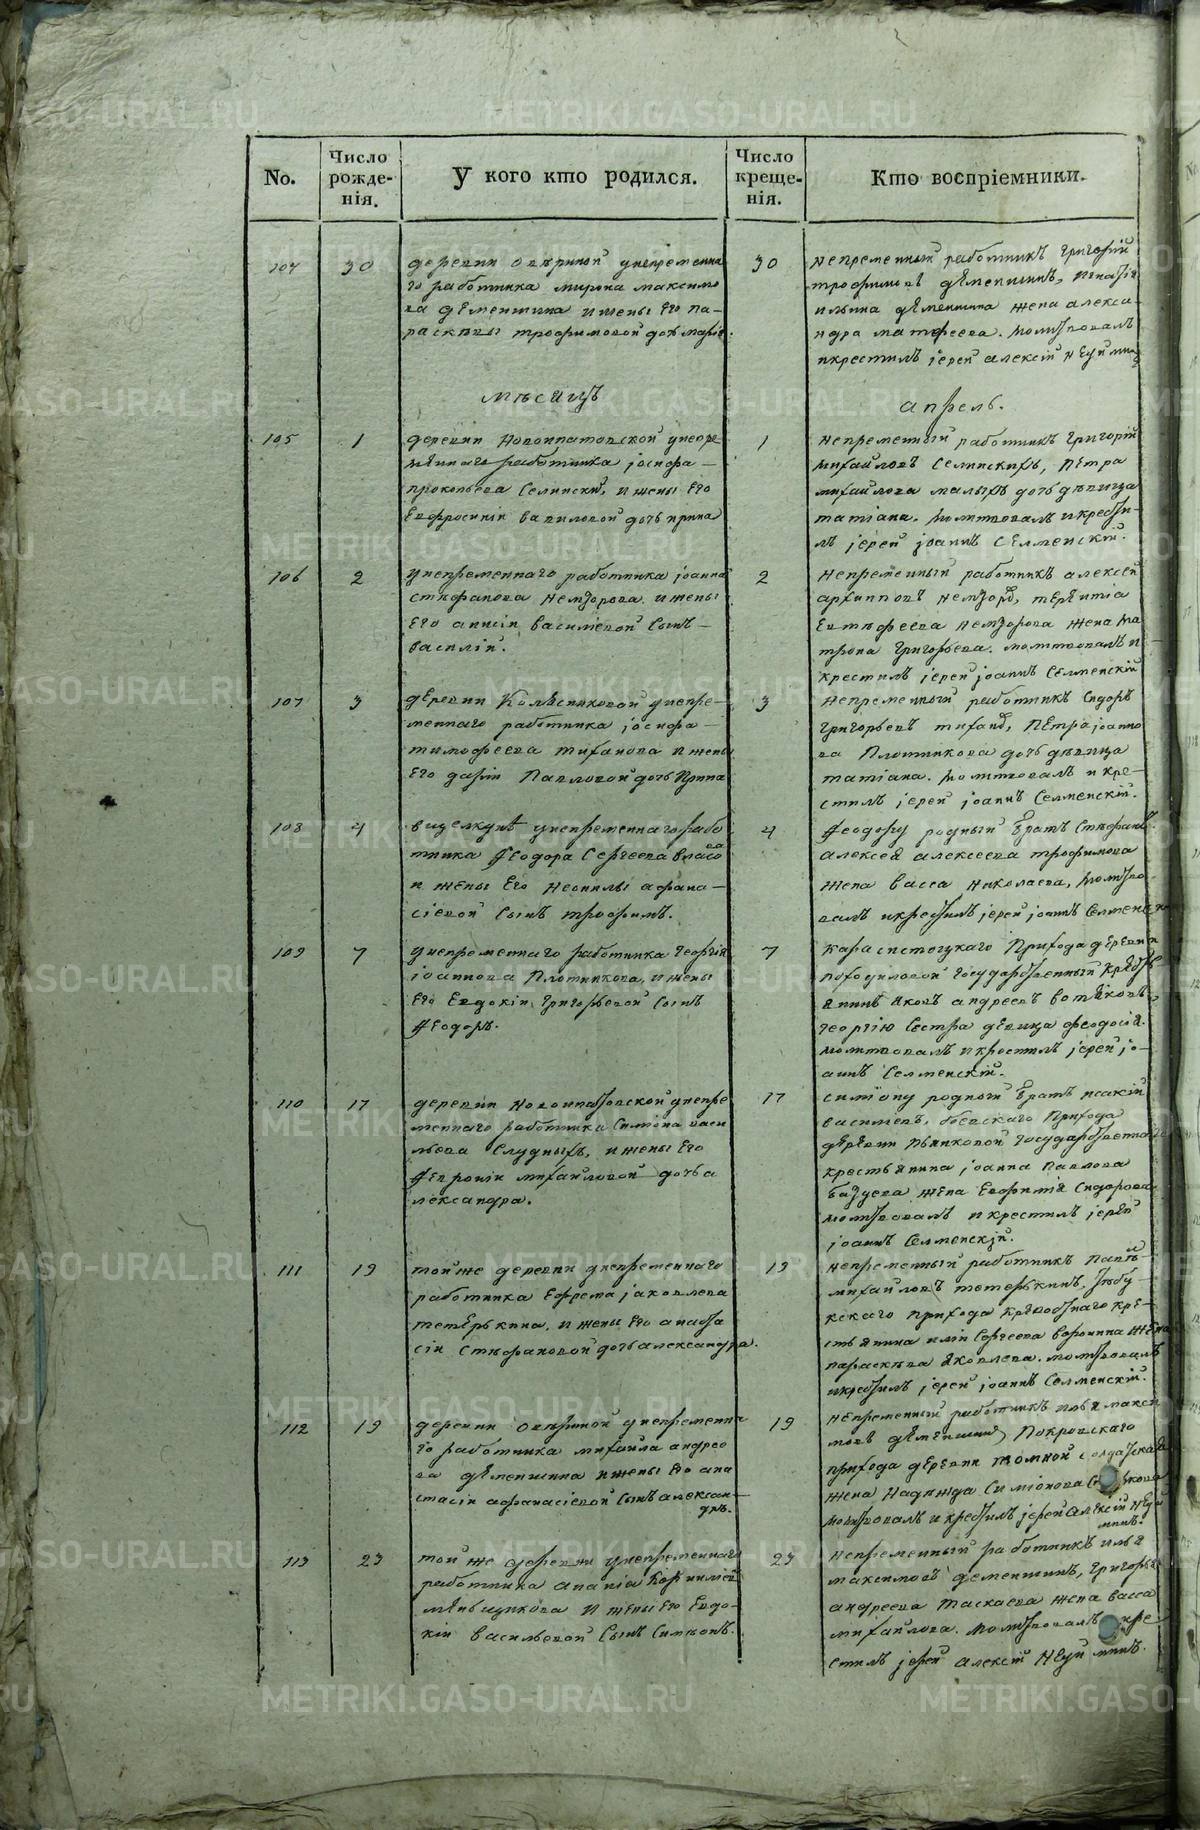 No.
Число рожденія.
У кого кто родился.
Число крещенія.
Кто воспріемники.
104
30
деревни Овериной у непременна
го работника мирона максимо
ва деменшина и жены его па-
раскевы трофимовой дочь марiя.
30
непременный работникъ григорий
трофимовъ деменшинъ, игнатiя
ильина деменшина жена алекса-
ндра матфеева. молитвовалъ
и крестилъ iерей алексiй Неуймин
мѣсяцъ
апрель.
105
1
деревни Новоипатовской у непре
меннаго работника iосифа
прокопьева Селински, и жены его
Евфросинiи вавиловой дочь ирина
1
непременный работникъ григорiй
михайловъ Селинскихъ, петра
михайлова малыхъ дочь девица
татiана. молитвовалъ и крести-
лъ iерей iоаннъ Селменскiй.
106
2
у непременнаго работника iоанна
стефанова и жены
его анисiи василiевой сынъ
василiй.
2
непременный работникъ алексей
архиповъ терентiя
Евтефеева жена ма
трона григорьева. молитвовалъ и
крестилъ iерей iоаннъ Селменскiй
107
3
деревни Колясниковой у непре-
меннаго работника iосифа
тимофеева тиханова и жены
его дарiи Павловой дочь ирина
3
непременный работникъ Сидоръ
григорьевъ тихан, Петра iоанно
ва Плотникова дочь девица
татiана. молитвовалъ и кре-
стилъ iерей iоаннъ Селменскiй.
108
4
у непременнаго рабо
тника Феодора Сергеева власова
и жены его неонилы афана-
сiевой сынъ трофимъ.
4
Феодору родный братъ Стефанъ.
алексея алексеева трофимова
жена васса николаева, молитво
валъ и крестилъ iерей iоаннъ Селменск
109
7
у непременнаго работника георгiя
iоаннова Плотникова, и жены
его Евдокiи григорьевой сынъ
Феодоръ.
7
Прихода деревни
государственный крестья
янинъ яковъ андреевъ вотяковъ
георгiю сестра девица феодосiя.
молитвовалъ и крестилъ iерей iо-
аннъ Селменскiй.
110
17
деревни новоипатовской у непре
меннаго работника Симiона васи
льева Слудныхъ, и жены его
Февронiи михайловой дочь а
лександра.
17
симiону родный братъ исакiй
василiевъ, боевскаго Прихода
деревни пьянковой государственнаго
крестьянина iоанна Павлова
жена Евфимiя Сидорова
молитвовалъ и крестилъ iерей
iоаннъ Селменскiй.
111
19
той же деревни у непременнаго
работника Ефрема iаковлева
тетерькина, и жены его анаста
сiи Стефановой дочь александра.
19
непременный работникъ Павелъ
михайловъ тетерькинъ,
скаго прихода кре-
стьянина илiи Сергеева воронина жена
параскева яковлева. молитвовалъ
и крестилъ iерей iоаннъ Селменскiй.
112
19
деревни Овериной у непременна
го работника михаила андрее
ва деменшина и жены его ана
стасiи афанасiевой сынъ алексан-
дръ.
19
непременный работникъ илья макси
мовъ деменшин, Покровскаго
прихода деревни солдатская
жена надежда Симiонова
молитвовалъ и крестилъ iерей алексiй неуй
минъ.
113
23
той же деревни у непременнаго
работника ананiя Корнилiев
меньщикова и жены его Евдо-
кiи васильевой сынъ Симеонъ.
23
непременный работникъ илья
максимовъ деменшинъ, григорья
андреева таскаева жена васса
михайлова. молитвовалъ и кре
стилъ iерей алексiй неуйминъ.